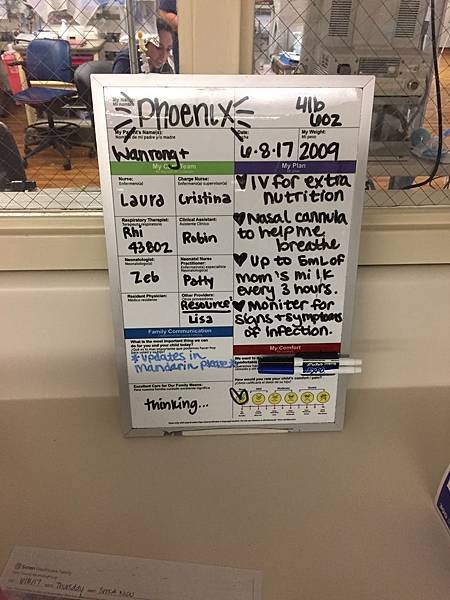 Phoenix
4lb
6oz
My Parent's Name(s):
Nombre de mi padre y/o madre
Date
My Weight:
Mi peso
Wanrong +
6·8·17
2009
My Plan
Nurse:
Enfermero(a)
Charge Nurse:
Laura
Cristina
Respiratory Therapist:
Clinical Assistant:
Asistente Clínico
Rhi
43802
Robin
Neonatologist:
Neonatólogo(a)
Neonatal Nurse
Practitioner:
Zeb
Patty
Resident Physician:
Médico residente
Other Providers:
Resource
Lisa
♥ IV for extra
nutrition
♥ Nasal cannula
to help me
breathe
♥ Up to 5mL of
mom's milk
every 3 hours.
♥ Moniter for
signs + symptoms
of infection.
Family Communication
What is the most important thing we can
do for you and your child today?
*updates in
mandarin please
Excellent Care for Our Family Means:
thinking...
My Comfort
How would you rate your child's comfort / pain?
Thursday